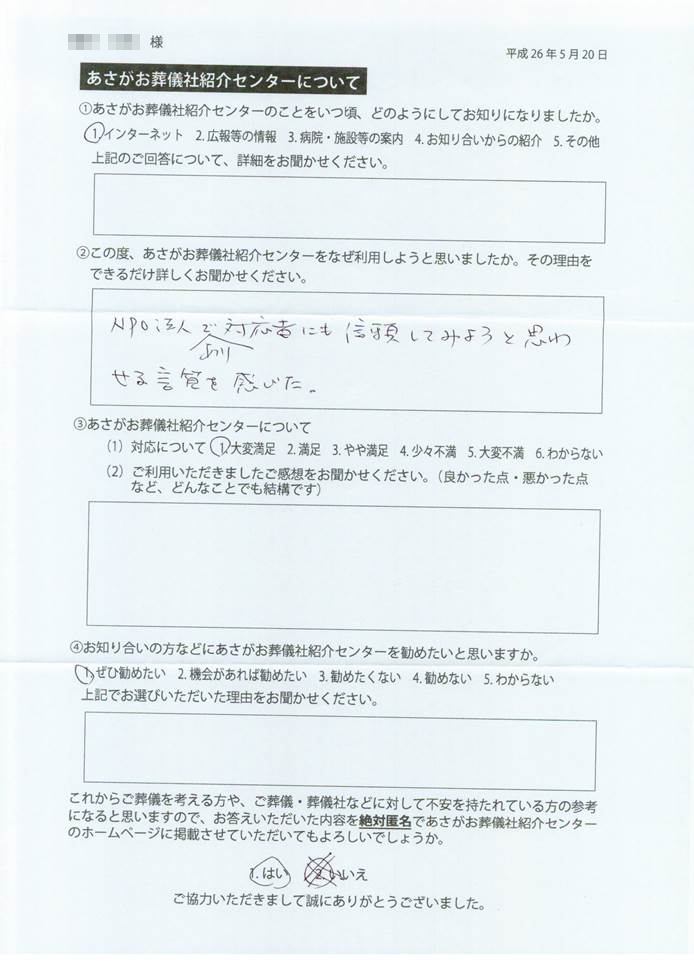 様
平成26年5月20日
あさがお葬儀社紹介センターについて
①あさがお葬儀社紹介センターのことをいつ頃、どのようにしてお知りになりましたか。
1.インターネット 2.広報等の情報 3.病院・施設等の案内 4.お知り合いからの紹介 5.その他
上記のご回答について、詳細をお聞かせください。
②この度、あさがお葬儀社紹介センターをなぜ利用しようと思いましたか。その理由を
できるだけ詳しくお聞かせください。
NPO法人で対応者にも信頼してみようと思わ
あり
せる言質を感じた。
③あさがお葬儀社紹介センターについて
(1) 対応について 1.大変満足 2.満足 3.やや満足 4.少々不満 5.大変不満 6.わからない
(2) ご利用いただきましたご感想をお聞かせください。(良かった点・悪かった点
など、どんなことでも結構です)
④お知り合いの方などにあさがお葬儀社紹介センターを勧めたいと思いますか。
1.ぜひ勧めたい 2.機会があれば勧めたい 3.勧めたくない 4.勧めない 5.わからない
上記でお選びいただいた理由をお聞かせください。
これからご葬儀を考える方や、ご葬儀・葬儀社などに対して不安を持たれている方の参考
になると思いますので、お答えいただいた内容を絶対匿名であさがお葬儀社紹介センター
のホームページに掲載させていただいてもよろしいでしょうか。
1.はい 2.いいえ
ご協力いただきまして誠にありがとうございました。